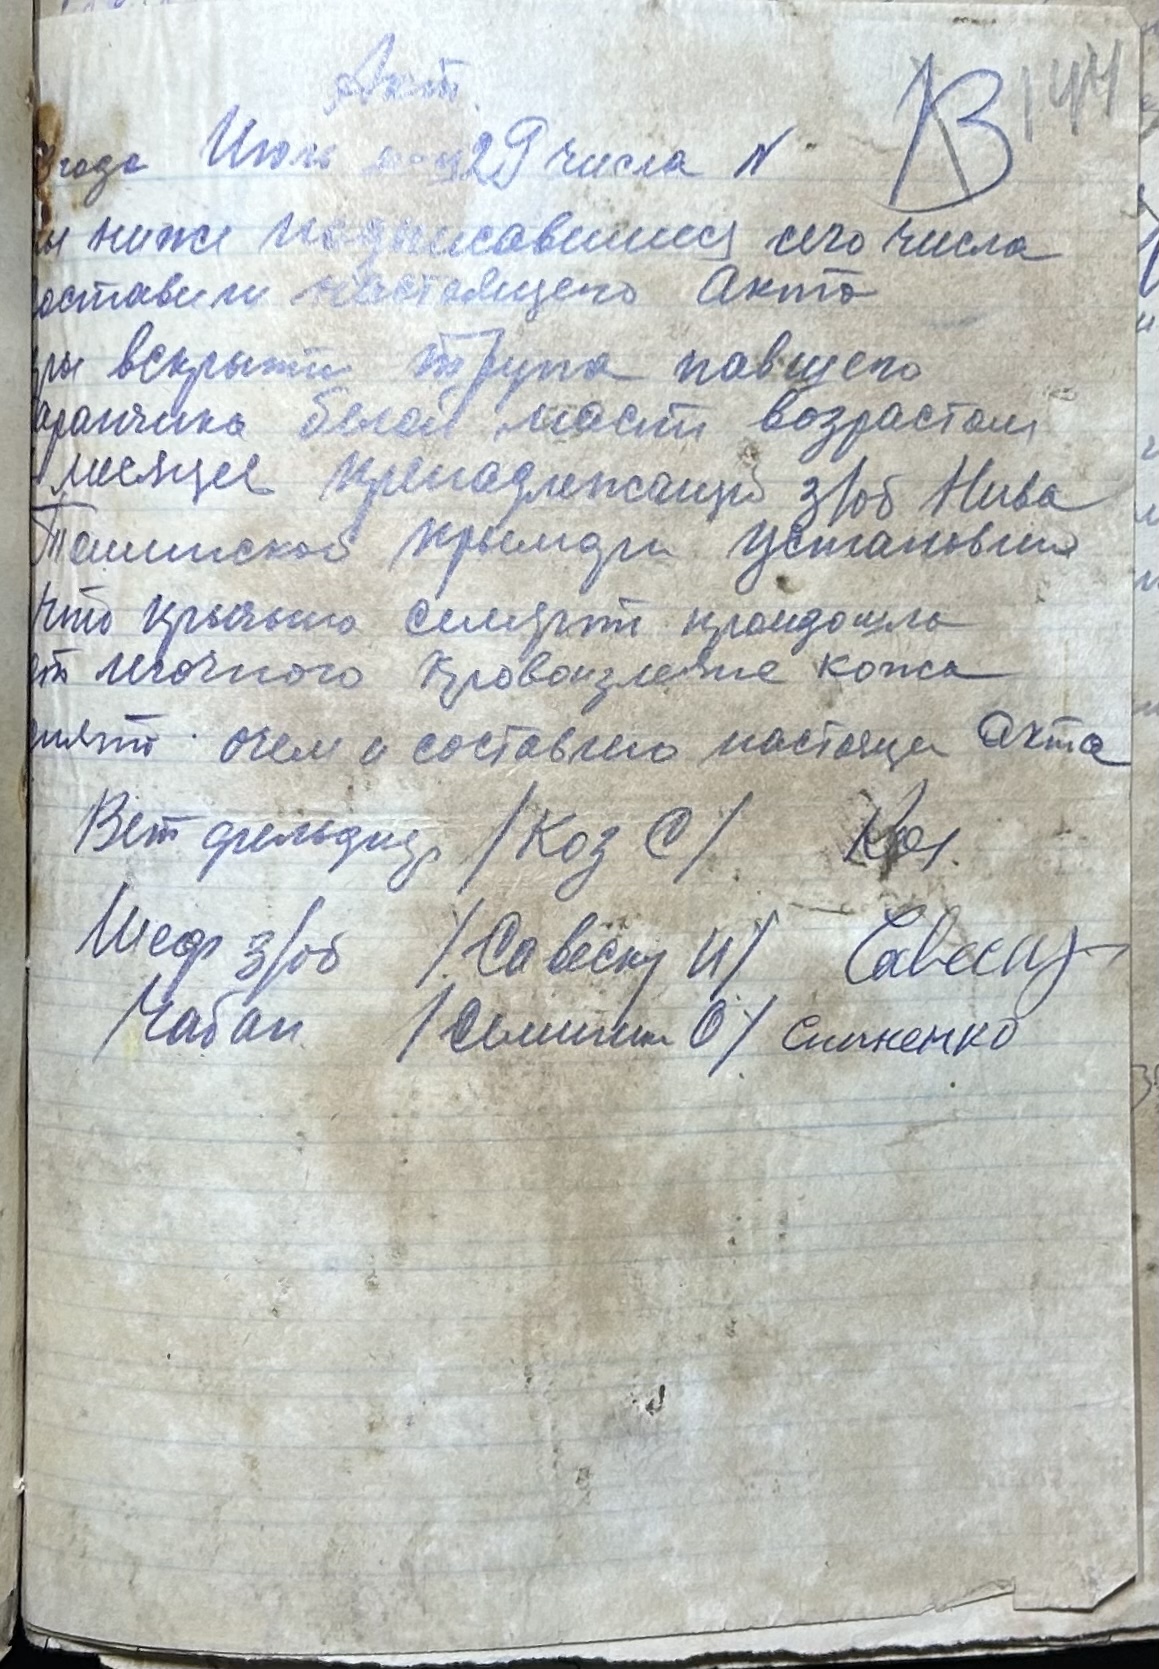 Акт.
144
года Июль м-ц 29 числа N
ы ниже подписавшиеся сего числа
оставили настоящего Акта
ры вскрыти трупа павшего
аранчика белой масти возрастом
месяцев пренадлежащий з/об Нива
что прычына смерти произошла
от легочного кровоизлеяние кожа
снято очем и составлено настоящи Акта
Вет фельдшер /Коз С/ Коз.
Шеф з/об /Савеску И/ Савеску
Чабан О/ Симненко